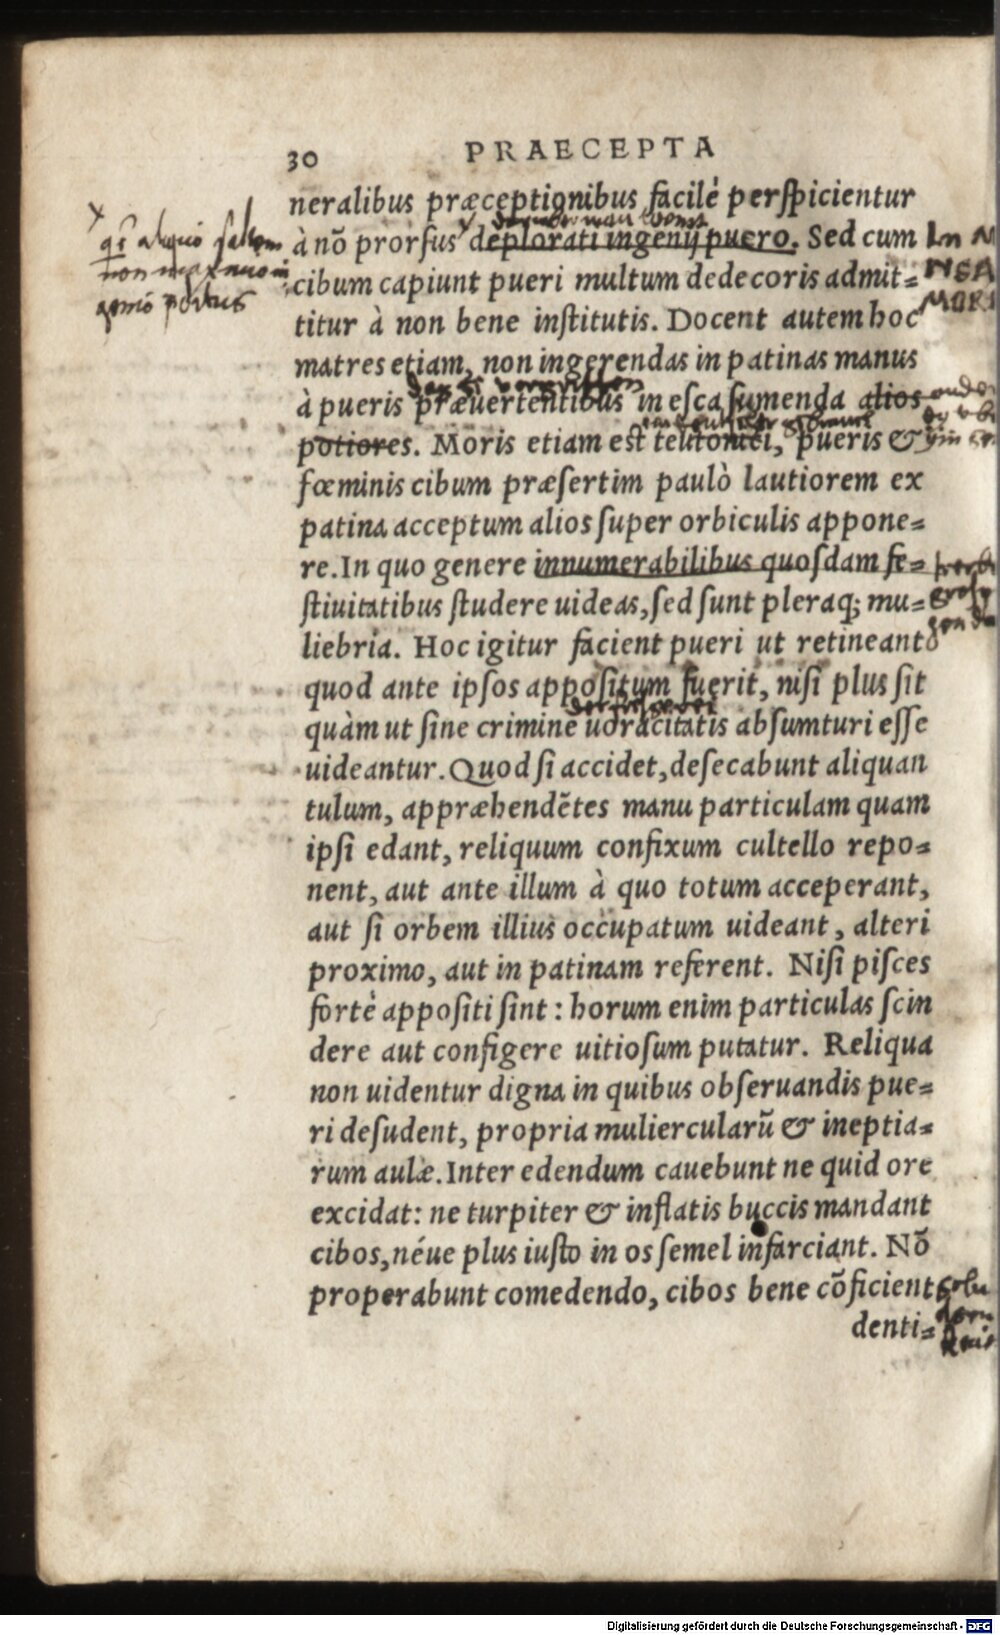 30 PRAECEPTA
neralibus præceptionibus facilè perſpicientur
à nō prorſus deplorati ingenij puero. Sed cum
cibum capiunt pueri multum dedecoris admit=
titur à non bene inſtitutis. Docent autem hoc
matres etiam, non ingerendas in patinas manus
à pueris præuertentibus in eſca ſumenda alios
potiores. Moris etiam eſt teutonici, pueris &
fœminis cibum præſertim paulò lautiorem ex
patina acceptum alios ſuper orbiculis appone=
re. In quo genere innumerabilibus quoſdam fe=
ſtiuitatibus ſtudere uideas, ſed ſunt pleraq; mu=
liebria. Hoc igitur facient pueri ut retineant
quod ante ipſos appoſitum fuerit, niſi plus ſit
quàm ut ſine crimine uoracitatis abſumturi eſſe
uideantur. Quod ſi accidet, deſecabunt aliquan
tulum, appræhendētes manu particulam quam
ipſi edant, reliquum confixum cultello repo=
nent, aut ante illum à quo totum acceperant,
aut ſi orbem illius occupatum uideant, alteri
proximo, aut in patinam referent. Niſi piſces
fortè appoſiti ſint : horum enim particulas ſcin
dere aut configere uitioſum putatur. Reliqua
non uidentur digna in quibus obſeruandis pue=
ri deſudent, propria muliercularū & ineptia=
rum aulæ. Inter edendum cauebunt ne quid ore
excidat: ne turpiter & inflatis buccis mandant
cibos, néue plus iuſto in os ſemel infarciant. Nō
properabunt comedendo, cibos bene cōficient
denti=
Digitalisierung gefördert durch die Deutsche Forschungsgemeinschaft - DFG